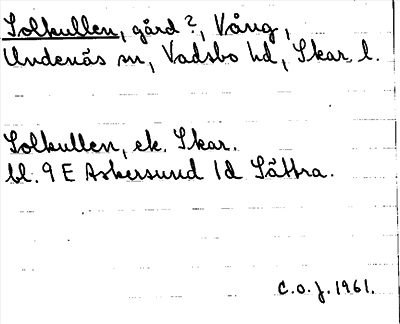 Solkullen, gård?, Vång,
Undenäs sn, Vadsbo hd, Skar. l.
Solkullen, ek. Skar.
bl. 9 E Askersund 1d Sättra.
C.O.J. 1961.